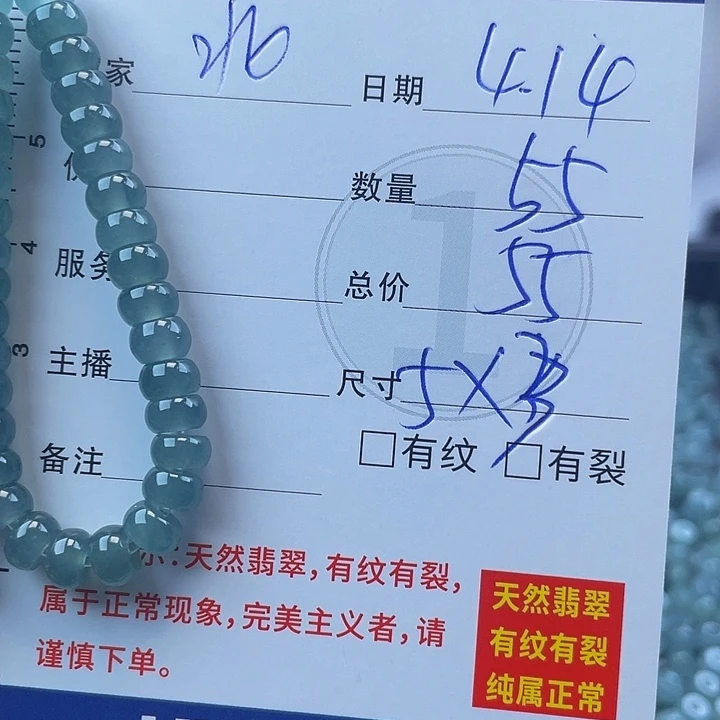 家 日期 4.14
数量 55
服务 总价 55
主播 尺寸 5X3
备注 □有纹 □有裂
示:天然翡翠,有纹有裂,
属于正常现象,完美主义者,请
谨慎下单。
天然翡翠
有纹有裂
纯属正常
5
4
3
1